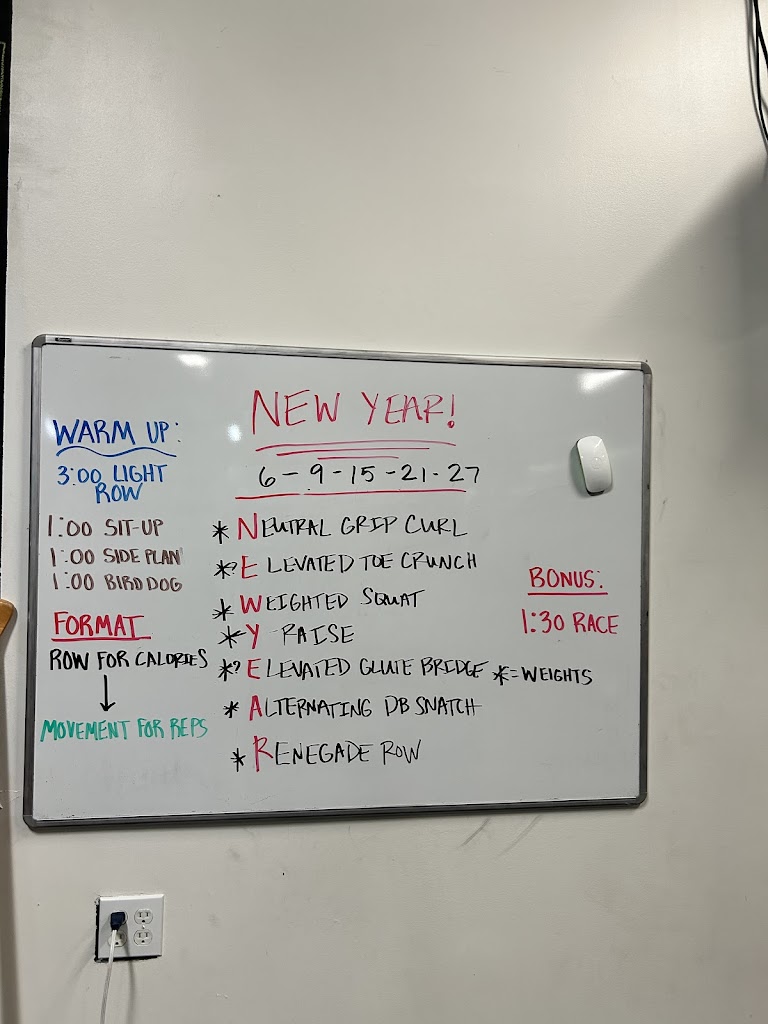 NEW YEAR!
6 - 9 - 15 - 21 - 27
WARM UP:
3:00 LIGHT
ROW
1:00 SIT-UP
1:00 SIDE PLAN
1:00 BIRD DOG
FORMAT
ROW FOR CALORIES
↓
MOVEMENT FOR REPS
* NEUTRAL GRIP CURL
*? ELEVATED TOE CRUNCH
* WEIGHTED SQUAT
* Y RAISE
*? ELEVATED GLUTE BRIDGE
* ALTERNATING DB SNATCH
* RENEGADE ROW
BONUS:
1:30 RACE
*=WEIGHTS